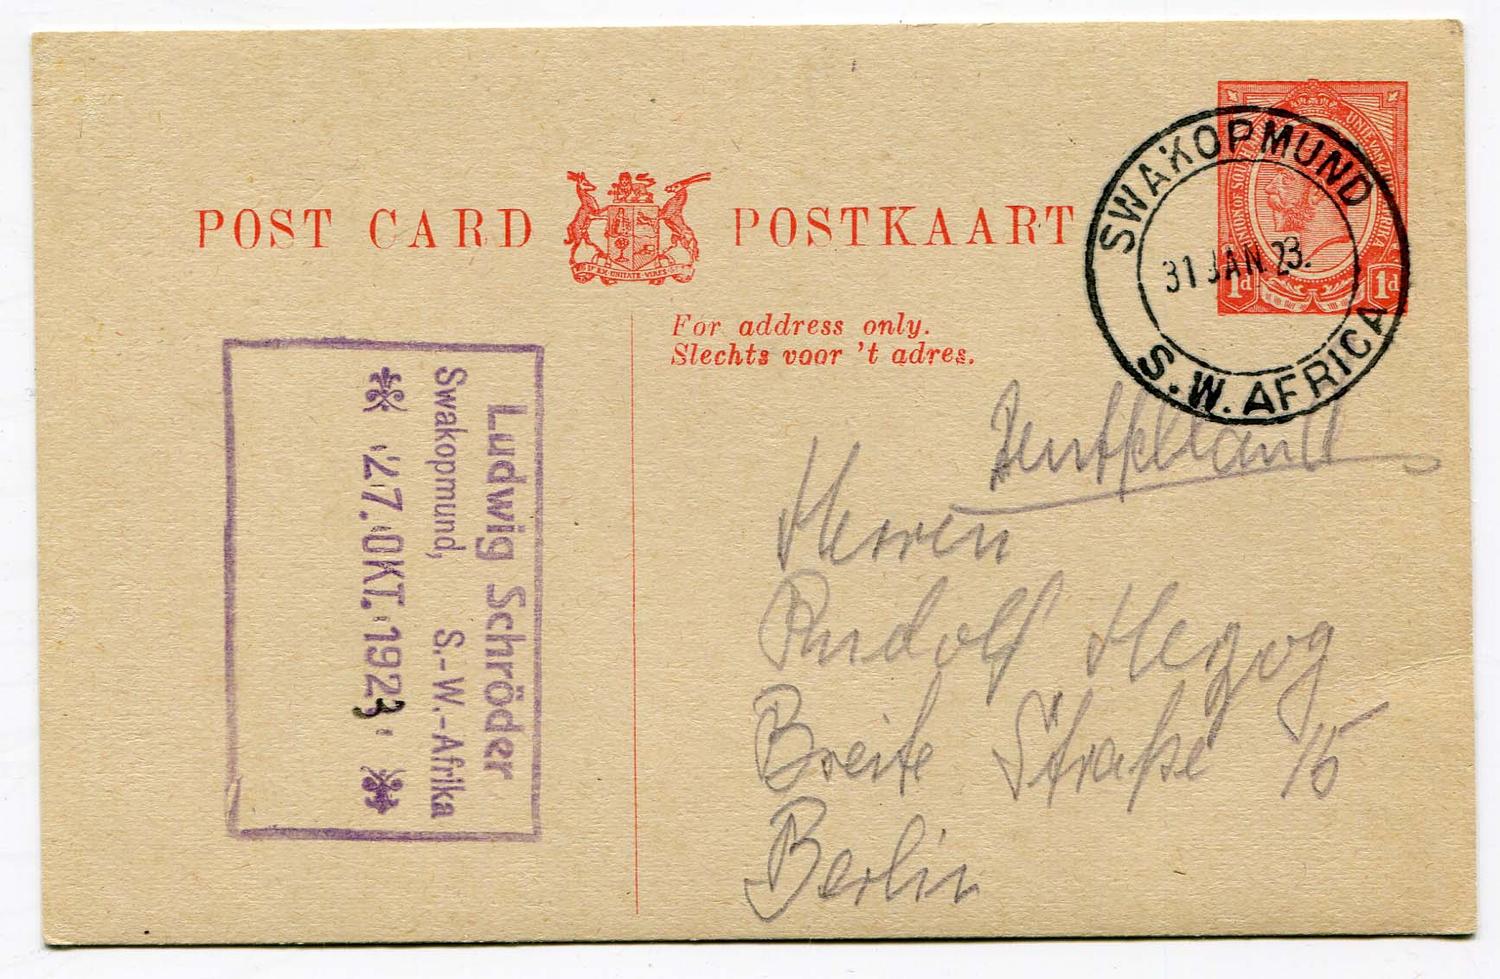 POST CARD POSTKAART
EX UNITATE VIRES
For address only.
Slechts voor 't adres.
UNION OF SOUTH
UNIE VAN ZUID AFRIKA
1d 1d
SWAKOPMUND
31 JAN 23.
S.W. AFRICA
Ludwig Schröder
Swakopmund, S.-W.-Afrika
27. OKT. 1923
Deutschland
Herren
Rudolf Herzog
Breite Straße 15
Berlin